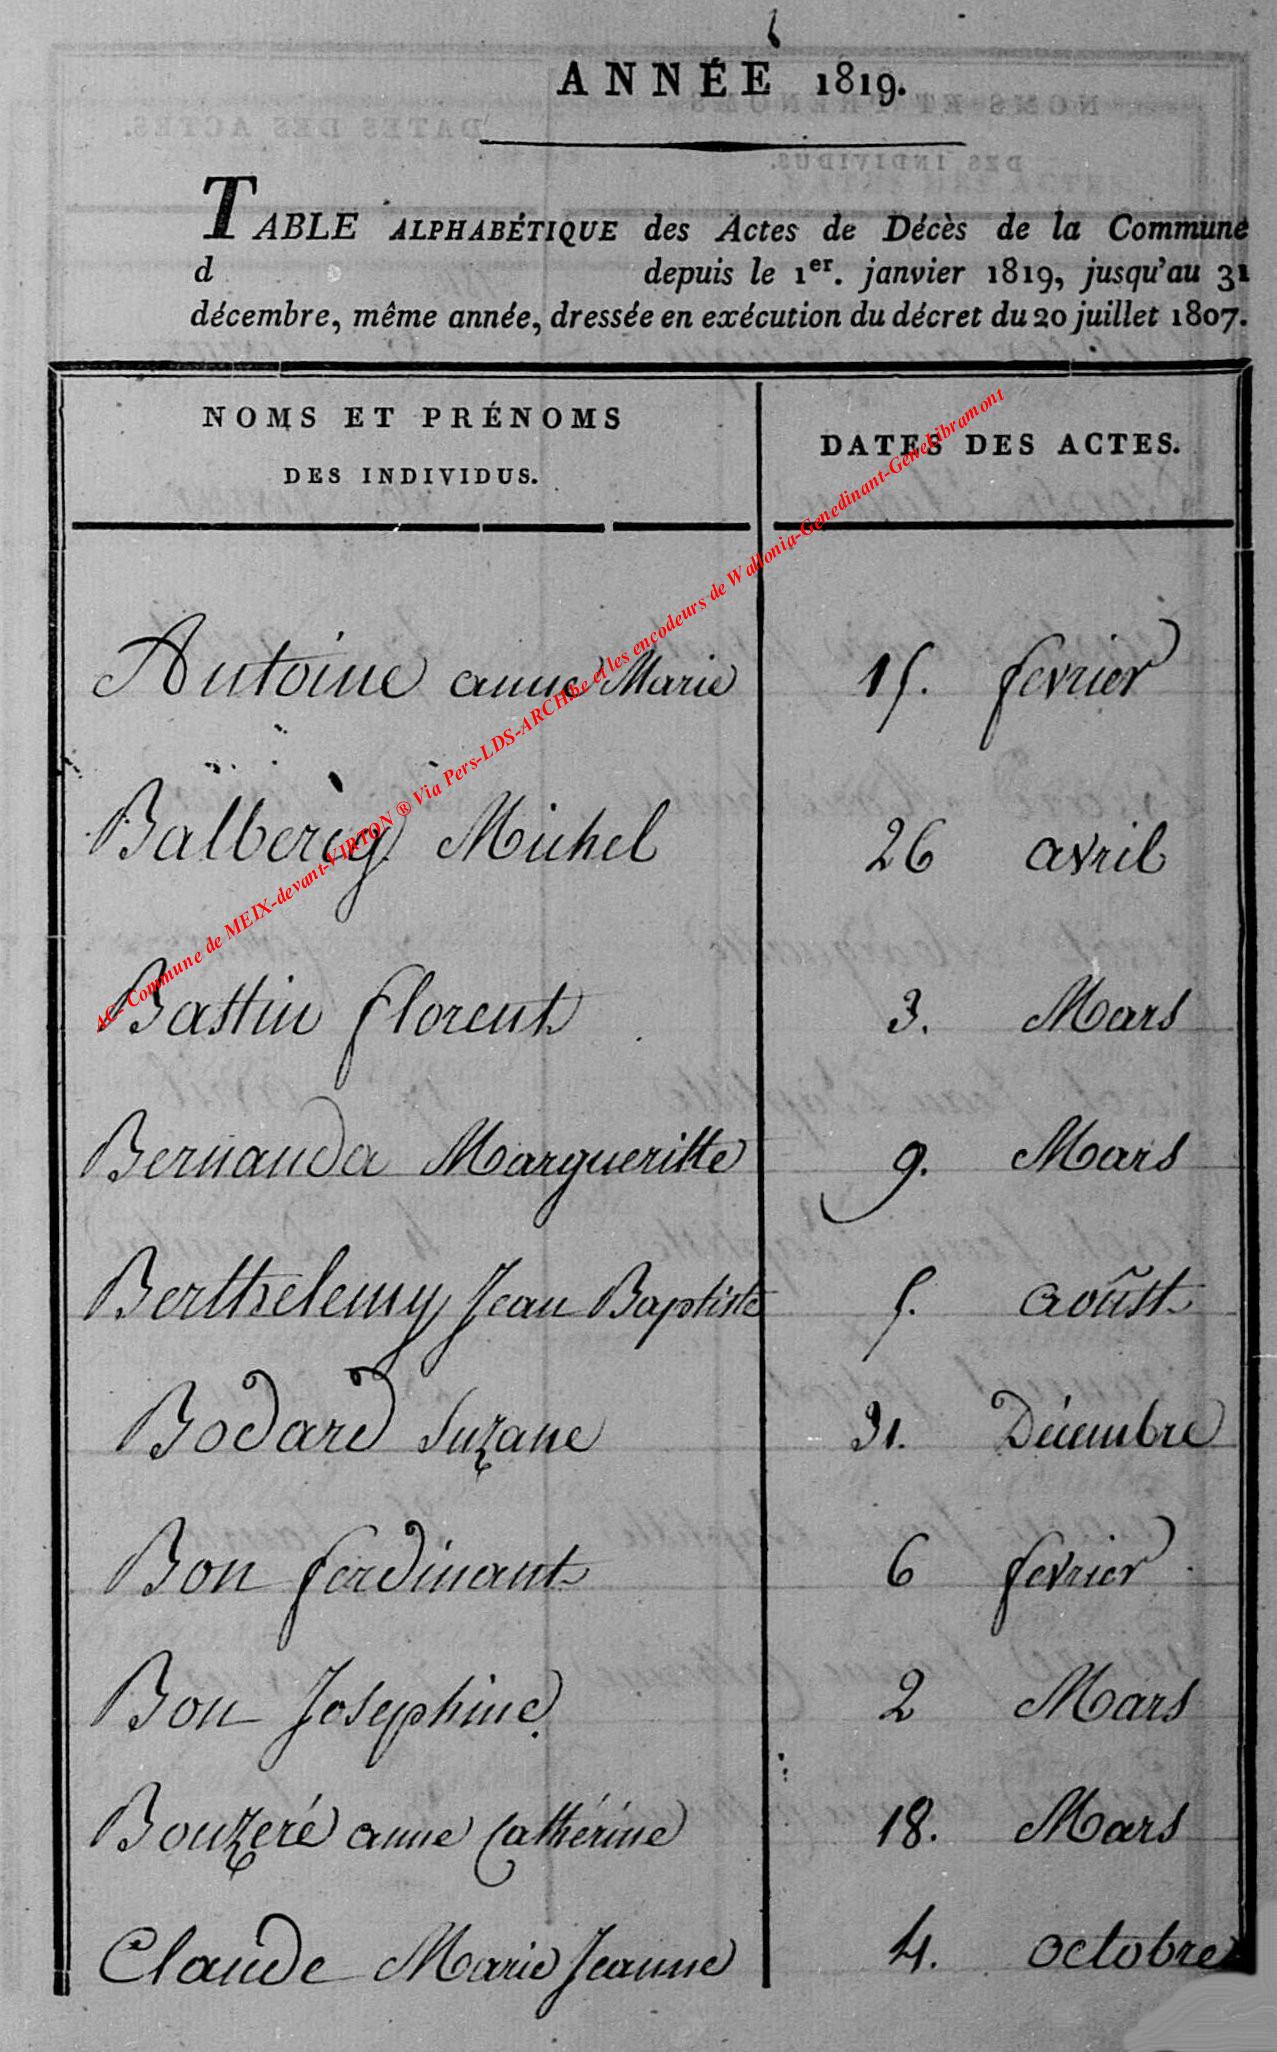 ANNÉE 1819.
TABLE ALPHABÉTIQUE des Actes de Décès de la Commune
d depuis le 1er. janvier 1819, jusqu'au 31
décembre, même année, dressée en exécution du décret du 20 juillet 1807.
NOMS ET PRÉNOMS
DES INDIVIDUS.
DATES DES ACTES.
AC- Commune de MEIX-devant-VIRTON ® Via Pers-LDS-ARCH.be et les encodeurs de Wallonia-Genedinant-GeneLibramont
Antoine anne Marie 15. fevrier
Balbercq Michel 26 avril
Bastin florent 3. Mars
Bernanda Margueritte 9. Mars
Berthelemy Jean Baptiste 5. aoûst
Bodard Suzane 31. Décembre
Bon ferdinant 6 fevrier
Bon Josephine. 2 Mars
Bouzeré anne Cathérine 18. Mars
Claude Marie Jeanne 4. octobre